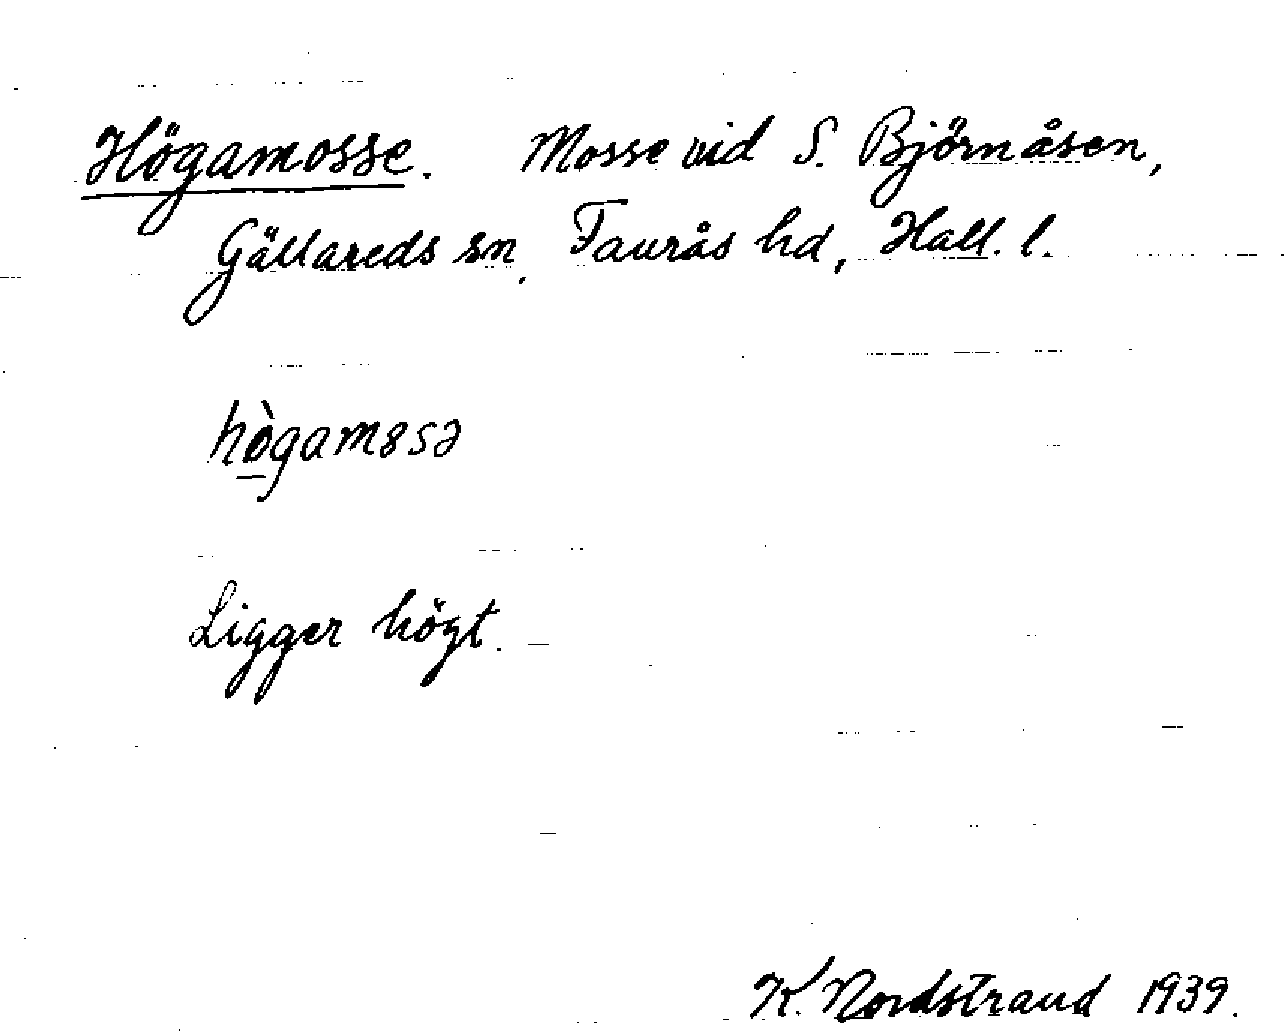 Högamosse. Mosse vid S. Björnåsen,
Gällareds sn, Faurås hd, Hall. l.
hò̲gam8sə
Ligger högt.
K. Nordstrand 1939.